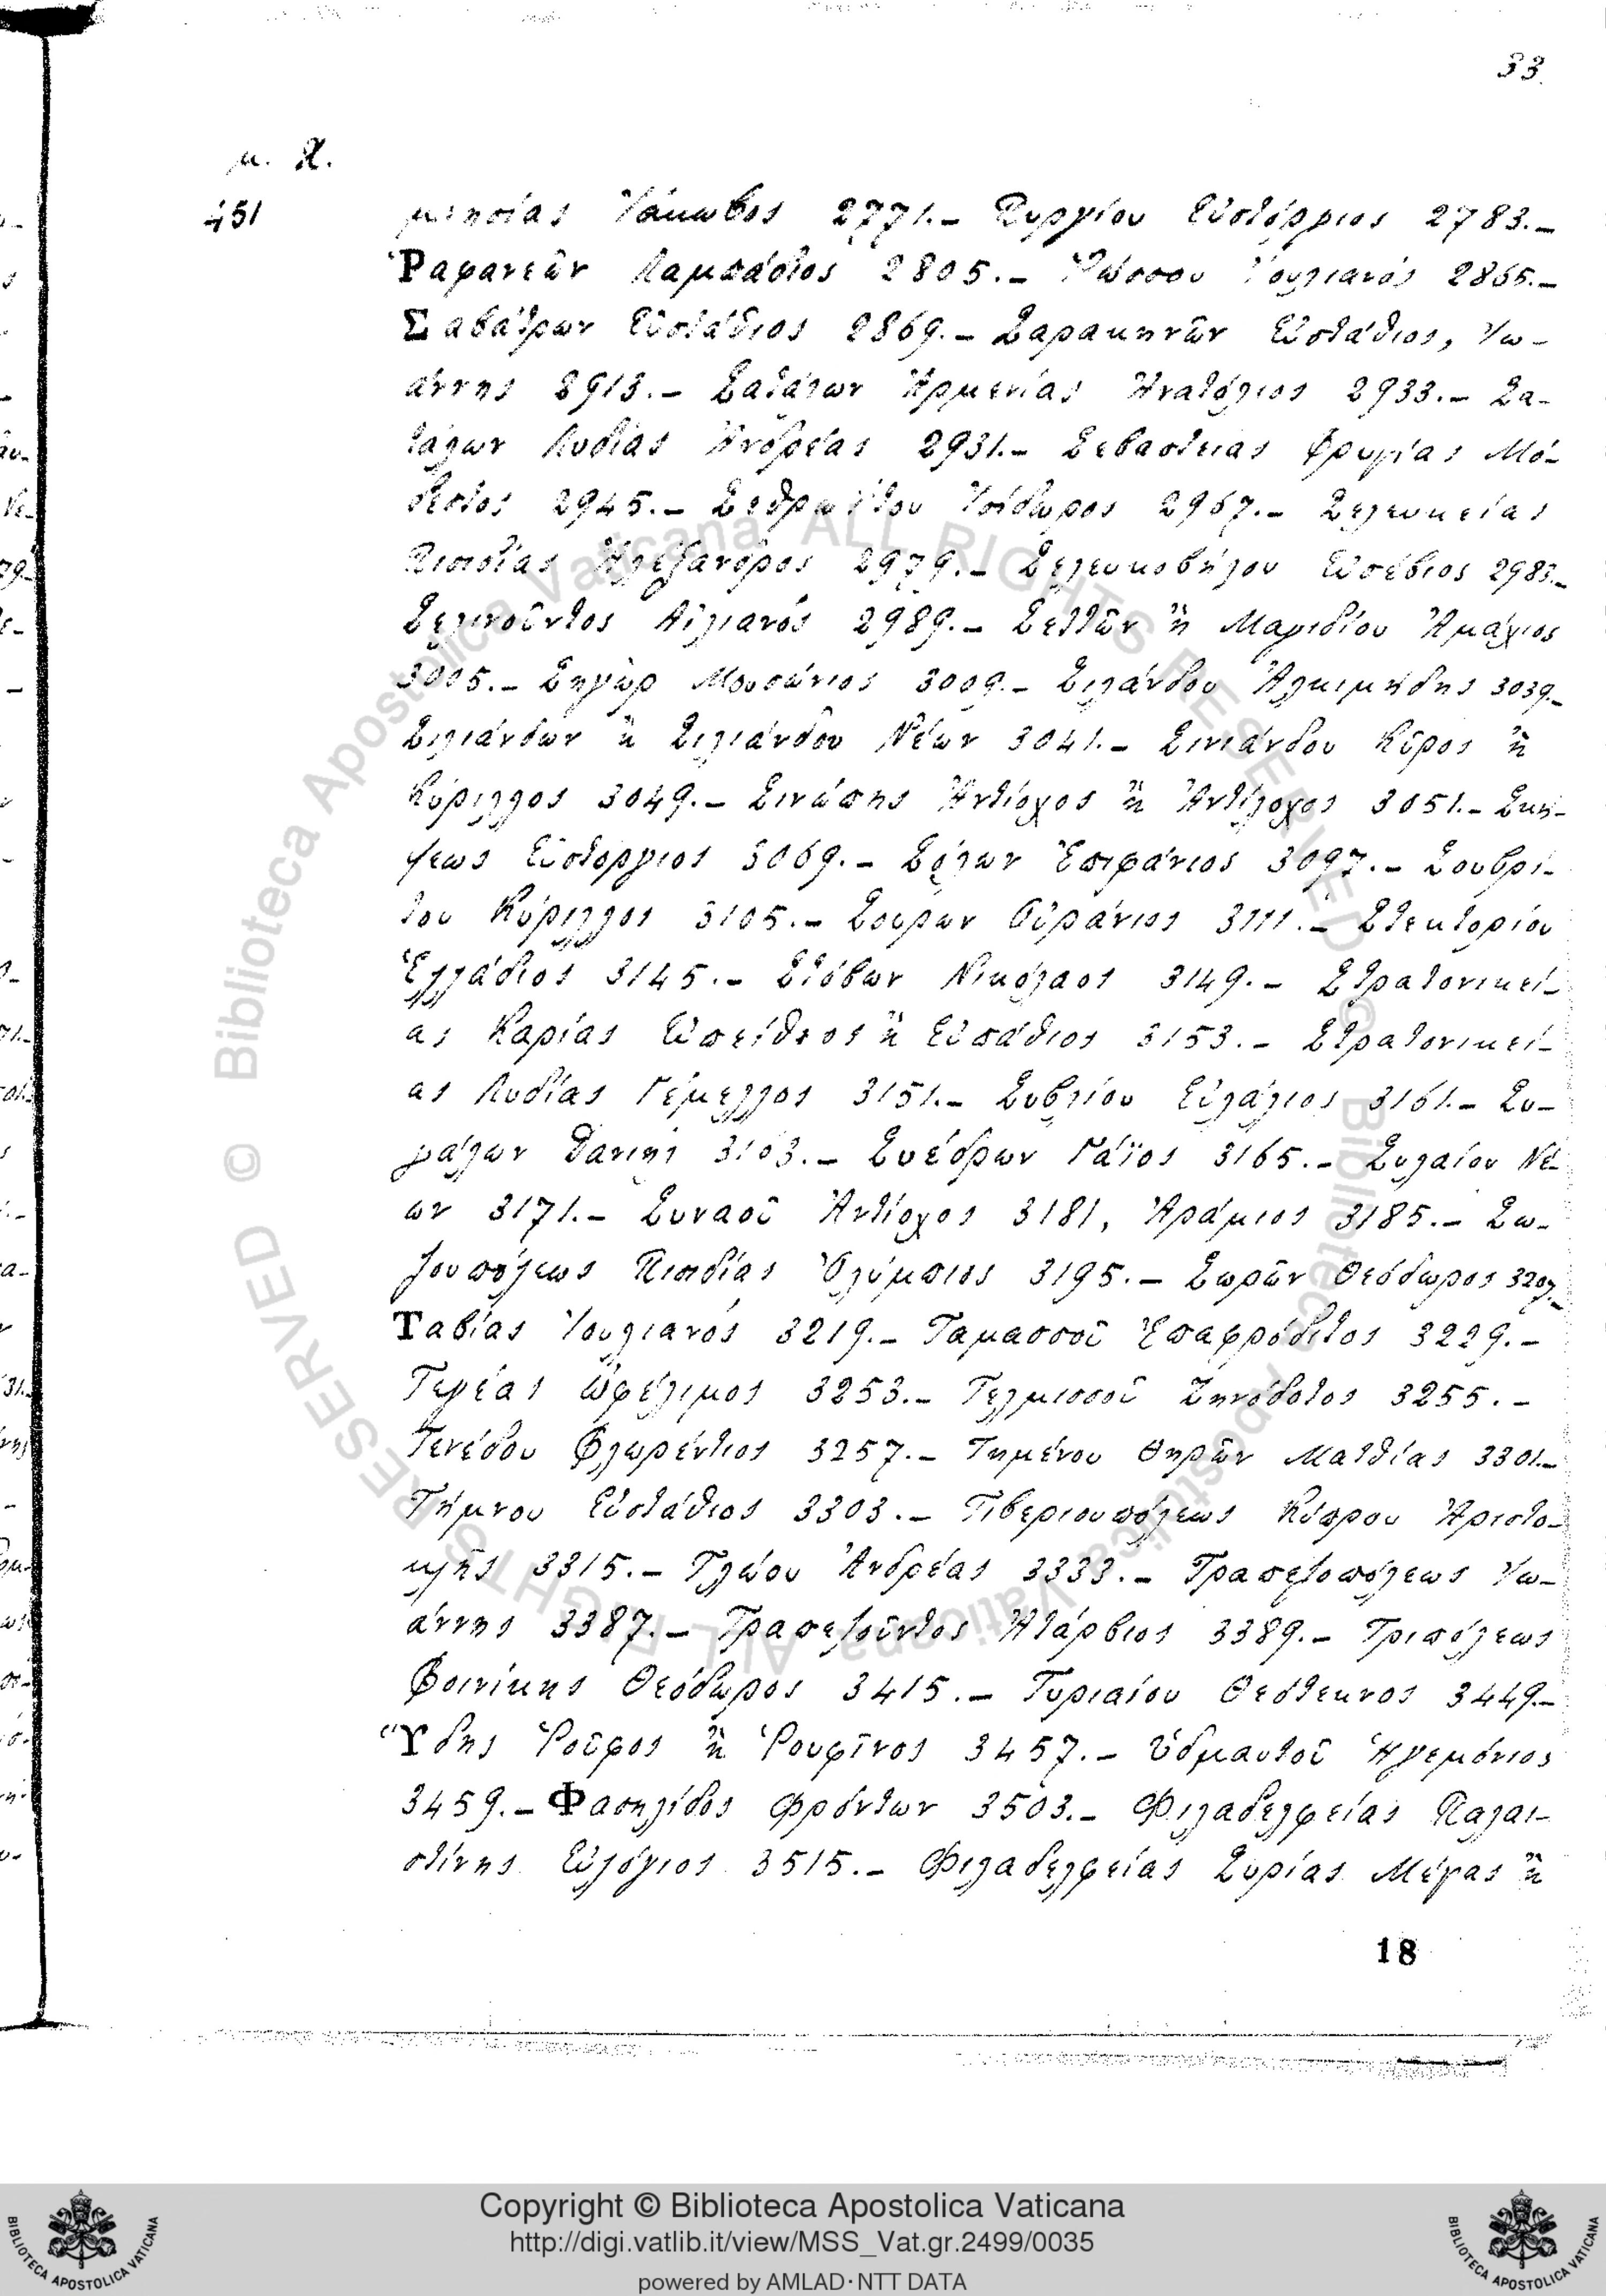 33
μ. Χ.
451 μενσίας Ἰάκωβος 2771.- Πυργίου Εὐστόργιος 2783.-
Ῥαφανεῶν Λαμπάδιος 2805.- Ῥώσσου Ἰουλιανός 2865.-
Σαβάτρων Εὐστάθιος 2869.- Σαρακηνῶν Εὐστάθιος, Ἰω-
άννης 2913.- Σατάλων Ἀρμενίας Ἀνατόλιος 2933.- Σα-
τάλων Λυδίας Ἀνδρέας 2931.- Σεβαστείας Φρυγίας Μό-
δεστος 2945.- Σεθρωΐτου Ἰσίδωρος 2967.- Σελευκείας
Πισιδίας Ἀλέξανδρος 2979.- Σελευκοβήλου Εὐσέβιος 2983.-
Σελινοῦντος Αἰλιανός 2989.- Σεττῶν ἢ Μαγιδίου Ἀμάχιος
3005.- Σηγὼρ Μουσώνιος 3009.- Σιλάνδου Ἀλκιμήδης 3039.-
Σιλιάνδων ἢ Σιλιάνδου Νέων 3041.- Σινιάνδου Κῦρος ἢ
Κύριλλος 3049.- Σινώπης Ἀντίοχος ἢ Ἀντίλοχος 3051.- Σκή-
ψεως Εὐστόργιος 3069.- Σόλων Ἐπιφάνιος 3097.- Σουβρί-
του Κύριλλος 3105.- Σούρων Οὐράνιος 3111.- Στεκτορίου
Ἑλλάδιος 3145.- Στόβων Νικόλαος 3149.- Στρατονικεί-
ας Καρίας Εὐπείθιος ἢ Εὐπάθιος 3153.- Στρατονικεί-
ας Λυδίας Γέμελλος 3151.- Συβλίου Εὐλάλιος 3161.- Συ-
μάλων Δανιὴλ 3163.- Συέδρων Γάϊος 3165.- Συλαίου Νέ-
ων 3171.- Συναοῦ Ἀντίοχος 3181, Ἀράμιος 3185.- Σω-
ζουπόλεως Πισιδίας Ὀλύμπιος 3195.- Σωρῶν Θεόδωρος 3207.-
Ταβίας Ἰουλιανός 3219.- Ταμασσοῦ Ἐπαφρόδιτος 3229.-
Τεγέας Ὠφέλιμος 3253.- Τελμισσοῦ Ζηνόδοτος 3255.-
Τενέδου Φλωρέντιος 3257.- Τημένου Θηρῶν Ματθίας 3301.-
Τήμνου Εὐστάθιος 3303.- Τιβεριουπόλεως Κύπρου Ἀριστο-
κλῆς 3315.- Τλώου Ἀνδρέας 3333.- Τραπεζοπόλεως Ἰω-
άννης 3387.- Τραπεζοῦντος Ἀτάρβιος 3389.- Τριπόλεως
Φοινίκης Θεόδωρος 3415.- Τυριαίου Θεότεκνος 3449.-
Ὕδης Ῥοῦφος ἢ Ῥουφῖνος 3457.- Ὑδμαυτοῦ Ἡγεμόνιος
3459.- Φασηλίδος Φρόντων 3503.- Φιλαδελφείας Παλαι-
στίνης Εὐλόγιος 3515.- Φιλαδελφείας Συρίας Μέγας ἢ
18
© Biblioteca Apostolica Vaticana ALL RIGHTS RESERVED
© Biblioteca Apostolica Vaticana ALL RIGHTS RESERVED
Copyright © Biblioteca Apostolica Vaticana
http://digi.vatlib.it/view/MSS_Vat.gr.2499/0035
powered by AMLAD·NTT DATA
BIBLIOTECA APOSTOLICA VATICANA
BIBLIOTECA APOSTOLICA VATICANA